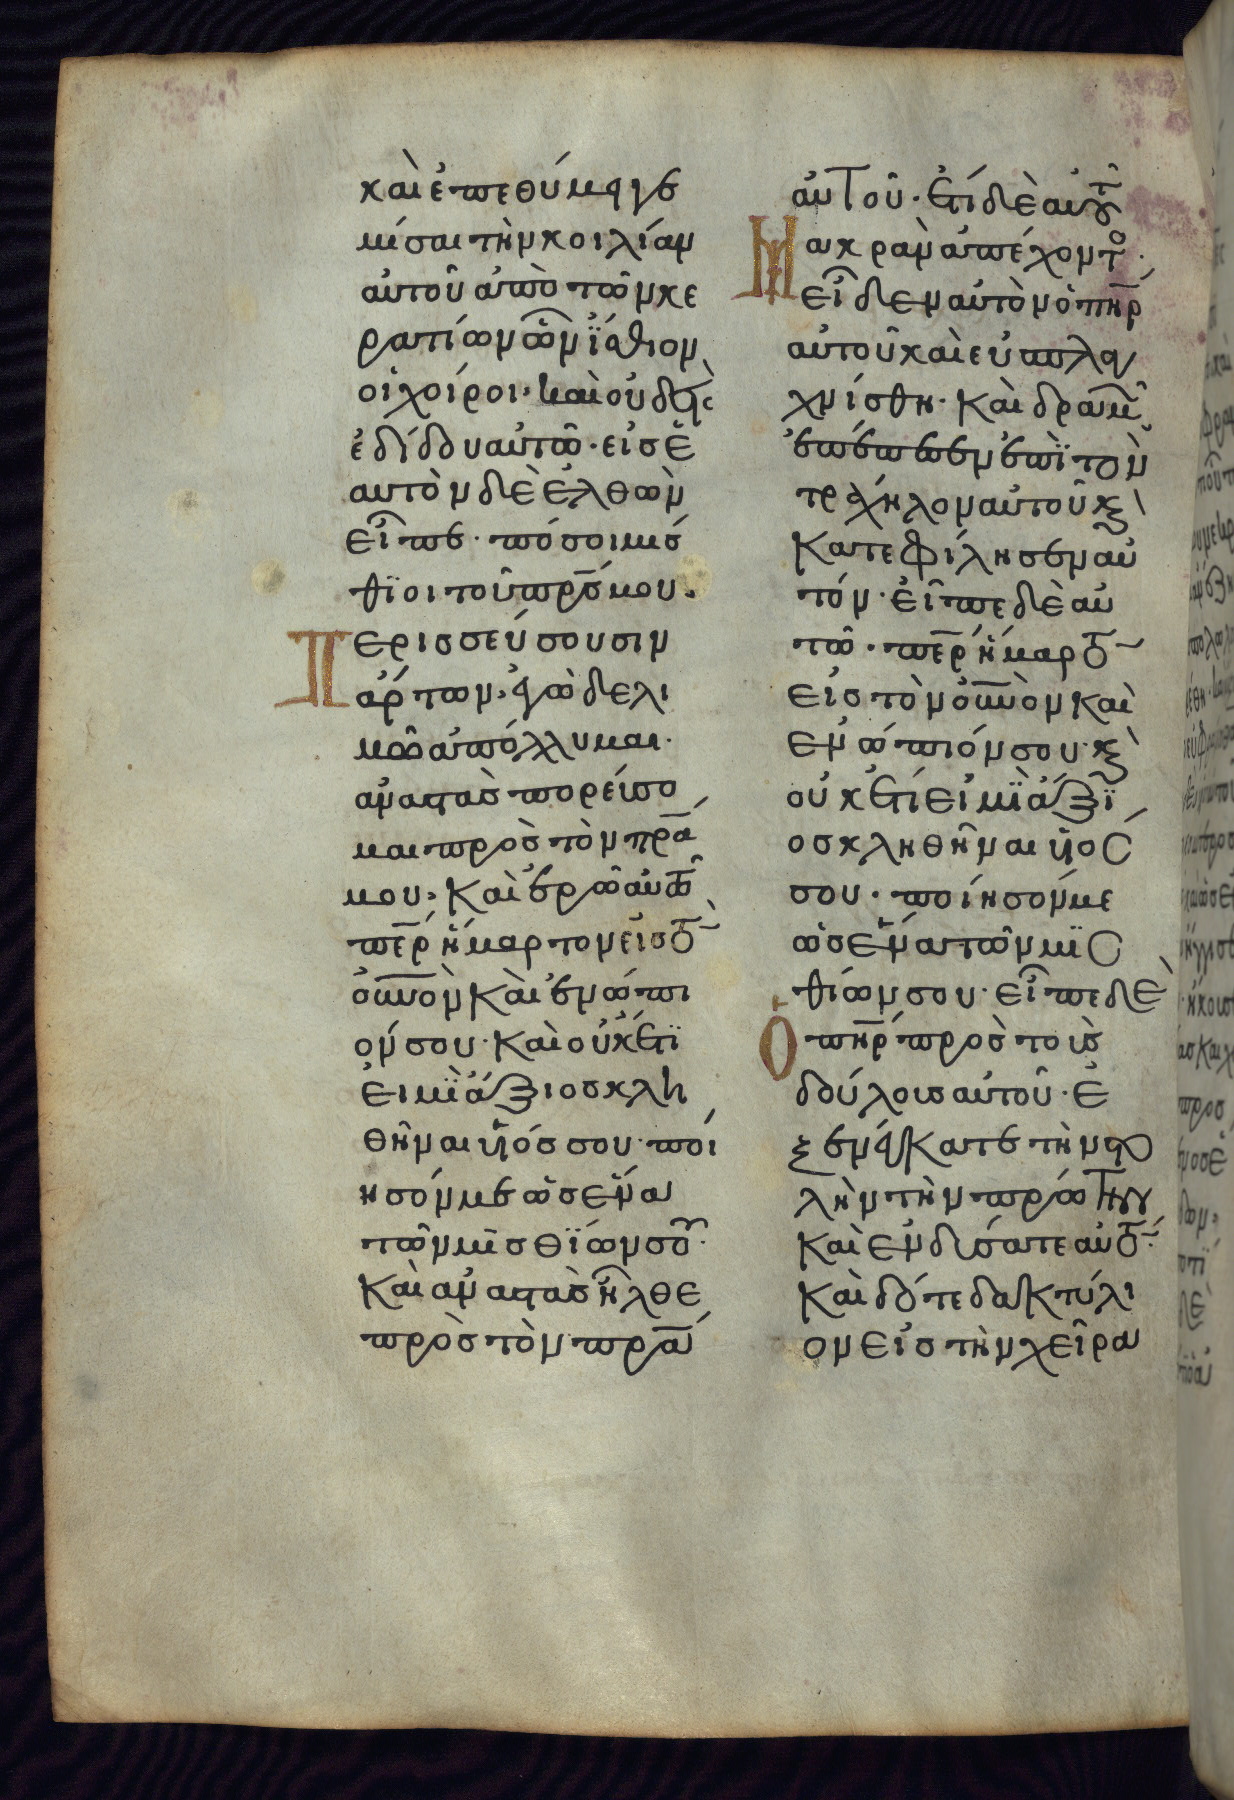 καὶ ἐπεθύμει γε
μίσαι τὴν κοιλίαν
αὐτοῦ ἀπὸ τῶν κε
ρατίων ὧν ἤσθιον
οἱ χοίροι· καὶ οὐδεὶς
ἐδίδου αὐτῶ· εἰς ἑ
αυτὸν δὲ ἐλθὼν
εἶπε· πόσοι μίσ
θϊοι τοῦ πρς μου·
Περισσεύουσιν
ἄρτων· ἐγὼ δὲ λι
μῶ ἀπόλλυμαι·
ἀναστὰς πορεύσο
μαι πρὸς τὸν πρα
μου· καὶ ἐρῶ αὐτῶ
περ ἥμαρτον εἰς τὸ
οὐνὸν καὶ ἐνώπι
όν σου· καὶ οὐκέτι
εἰμῒ ἄξιος κλη
θῆναι υἱός σου· ποί
ησόν με ὡς ἕνα
τῶν μισθΐων σου·
καὶ ἀναστὰς ἦλθε
πρὸς τὸν πρα
αὐτοῦ· ἔτι δὲ αὐτοῦ
Μακρὰν ἀπέχοντο
εἶδεν αὐτὸν ὁ πηρ
αὐτοῦ καὶ εὐσπλα
χνίσθη· καὶ δραμὼ
ἐπέπεσεν ἐπῒ τὸν
τράχηλον αὐτοῦ κ
κατεφίλησεν αὐ
τόν· εἶπε δὲ αὐ
τῶ· περ ἥμαρτο
εἰς τὸν οὐνὸν καὶ
ἐνώπιόν σου· κ
οὐκέτι εἰμῒ ἄξι
ος κληθῆναι υἱος
σου· ποίησόν με
ὡς ἕνα τῶν μισ
θίων σου· εἶπε δὲ
Ὁ πηρ πρὸς τοὺς
δούλους αὐτοῦ· ἐ
ξενέγκατε τὴν στο
λὴν τὴν πρώτην
καὶ ἐνδύσατε αὐτο
καὶ δότε δακτύλι
ον εἰς τὴν χεῖρα